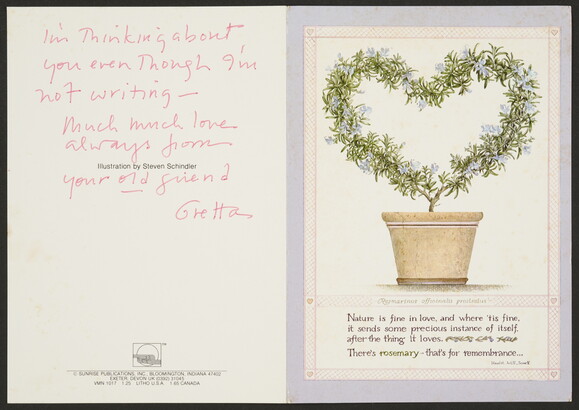 I'm Thinking about
you even Though I'm
not writing —
Much much love
always from
Illustration by Steven Schindler
your old friend
Gretta
© SUNRISE PUBLICATIONS, INC., BLOOMINGTON, INDIANA 47402
EXETER, DEVON UK (0392) 31043
VMN 1017 1.25 LITHO U.S.A. 1.65 CANADA
Rosmarinus officinalis
Nature is fine in love, and where 'tis fine,
it sends some precious instance of itself,
after the thing it loves.
There's rosemary - that's for remembrance...